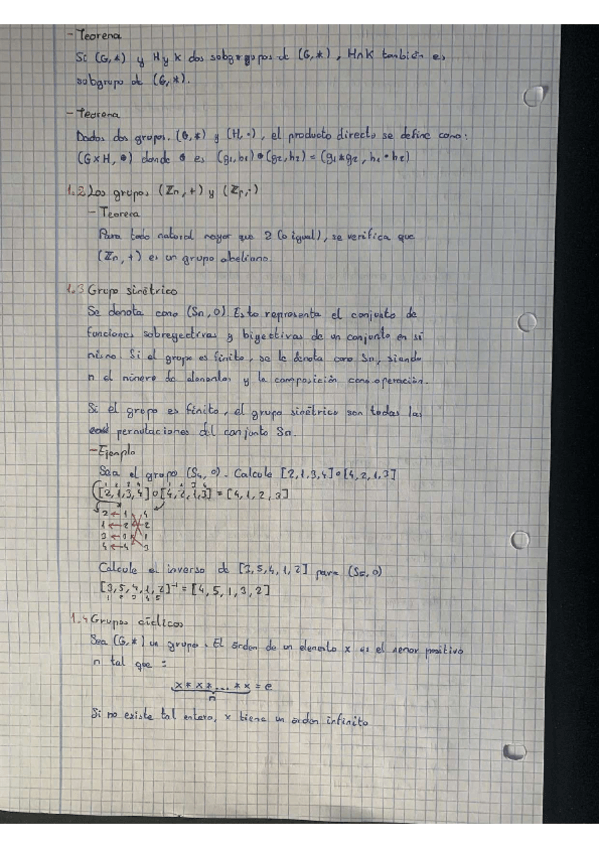 - Teorema
Si (G,*) y H y K dos subgrupos de (G,*), H∩K también es
subgrupo de (G,*).
- Teorema
Dados dos grupos. (G,*) y (H,·), el producto directo se define como:
(G×H, ⊙) donde ⊙ es (g1,h1)⊙(g2,h2) = (g1*g2, h1·h2)
1.2 Los grupos (Zn,+) y (Zp,·)
- Teorema
Para todo natural mayor que 2 (o igual), se verifica que
(Zn,+) es un grupo abeliano.
1.3 Grupo simétrico
Se denota como (Sn, o). Esto representa el conjunto de
funciones sobreyectivas y biyectivas de un conjunto en sí
mismo. Si el grupo es finito, se le denota como Sn, siendo
n el número de elementos y la composición como operación.
Si el grupo es finito, el grupo simétrico son todas las
permutaciones del conjunto Sn.
- Ejemplo
Sea el grupo (S4, o). Calcule [2,1,3,4] o [4,2,1,3]
1 2 3 4 1 2 3 4
[2,1,3,4] o [4,2,1,3] = [4,1,2,3]
2 ← 1 4
1 ← 2 2
3 ← 3 1
4 ← 4 3
Calcule el inverso de [3,5,4,1,2] para (S5, o)
[3,5,4,1,2]⁻¹ = [4,5,1,3,2]
1 2 3 4 5
1.4 Grupos cíclicos
Sea (G,*) un grupo. El orden de un elemento x es el menor positivo
n tal que:
x * x * ... * x = e
n
Si no existe tal entero, x tiene un orden infinito